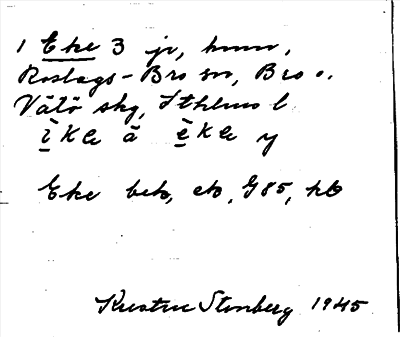 1 Eke 3 jr, hmn,
Roslags-Bro sn, Bro o.
Vätö skg, Sthlms l
ìke ä èke y
Eke beb, eb, G85, hb
Kerstin Stenberg 1945